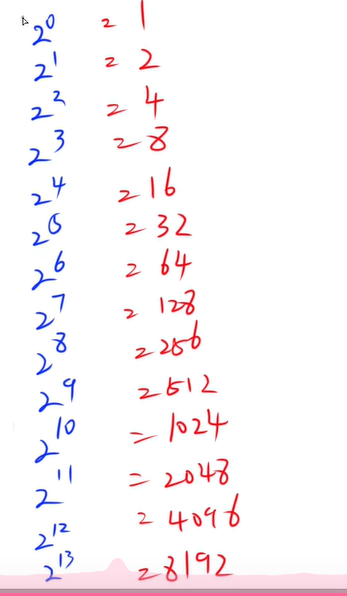 2⁰ = 1
2¹ = 2
2² = 4
2³ = 8
2⁴ = 16
2⁵ = 32
2⁶ = 64
2⁷ = 128
2⁸ = 256
2⁹ = 512
2¹⁰ = 1024
2¹¹ = 2048
2¹² = 4096
2¹³ = 8192